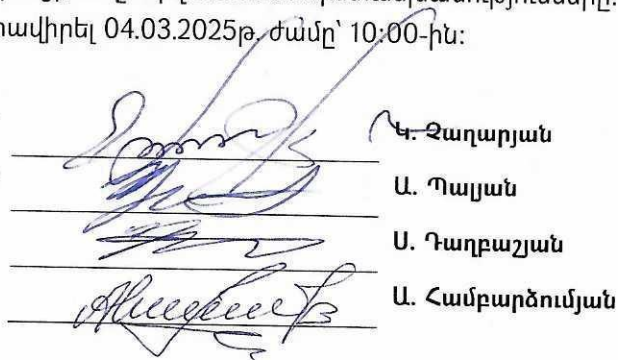 հրավիրել 04.03.2025թ. ժամը՝ 10:00-ին:
Կ. Չաղարյան
Ա. Պալյան
Ս. Դաղբաշյան
Ա. Համբարձումյան